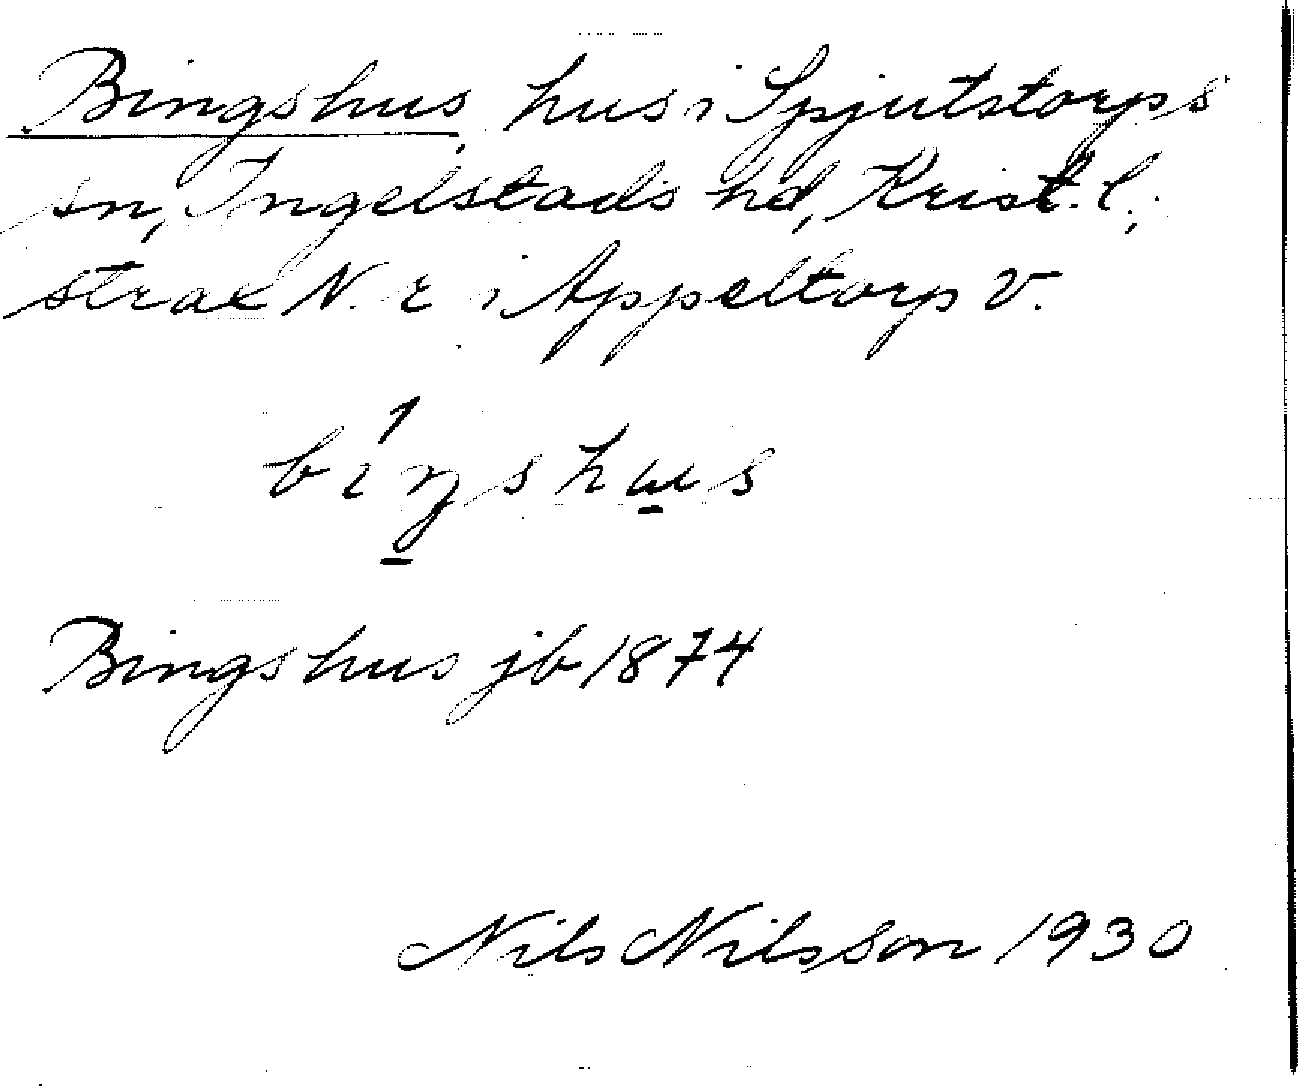 Bingshus, hus i Spjutstorps
sn, Ingelstads hd, Krist. l.,
strax N. r i Appeltorp v.
bíŋshus
Bingshus jb 1874
Nils Nilsson 1930